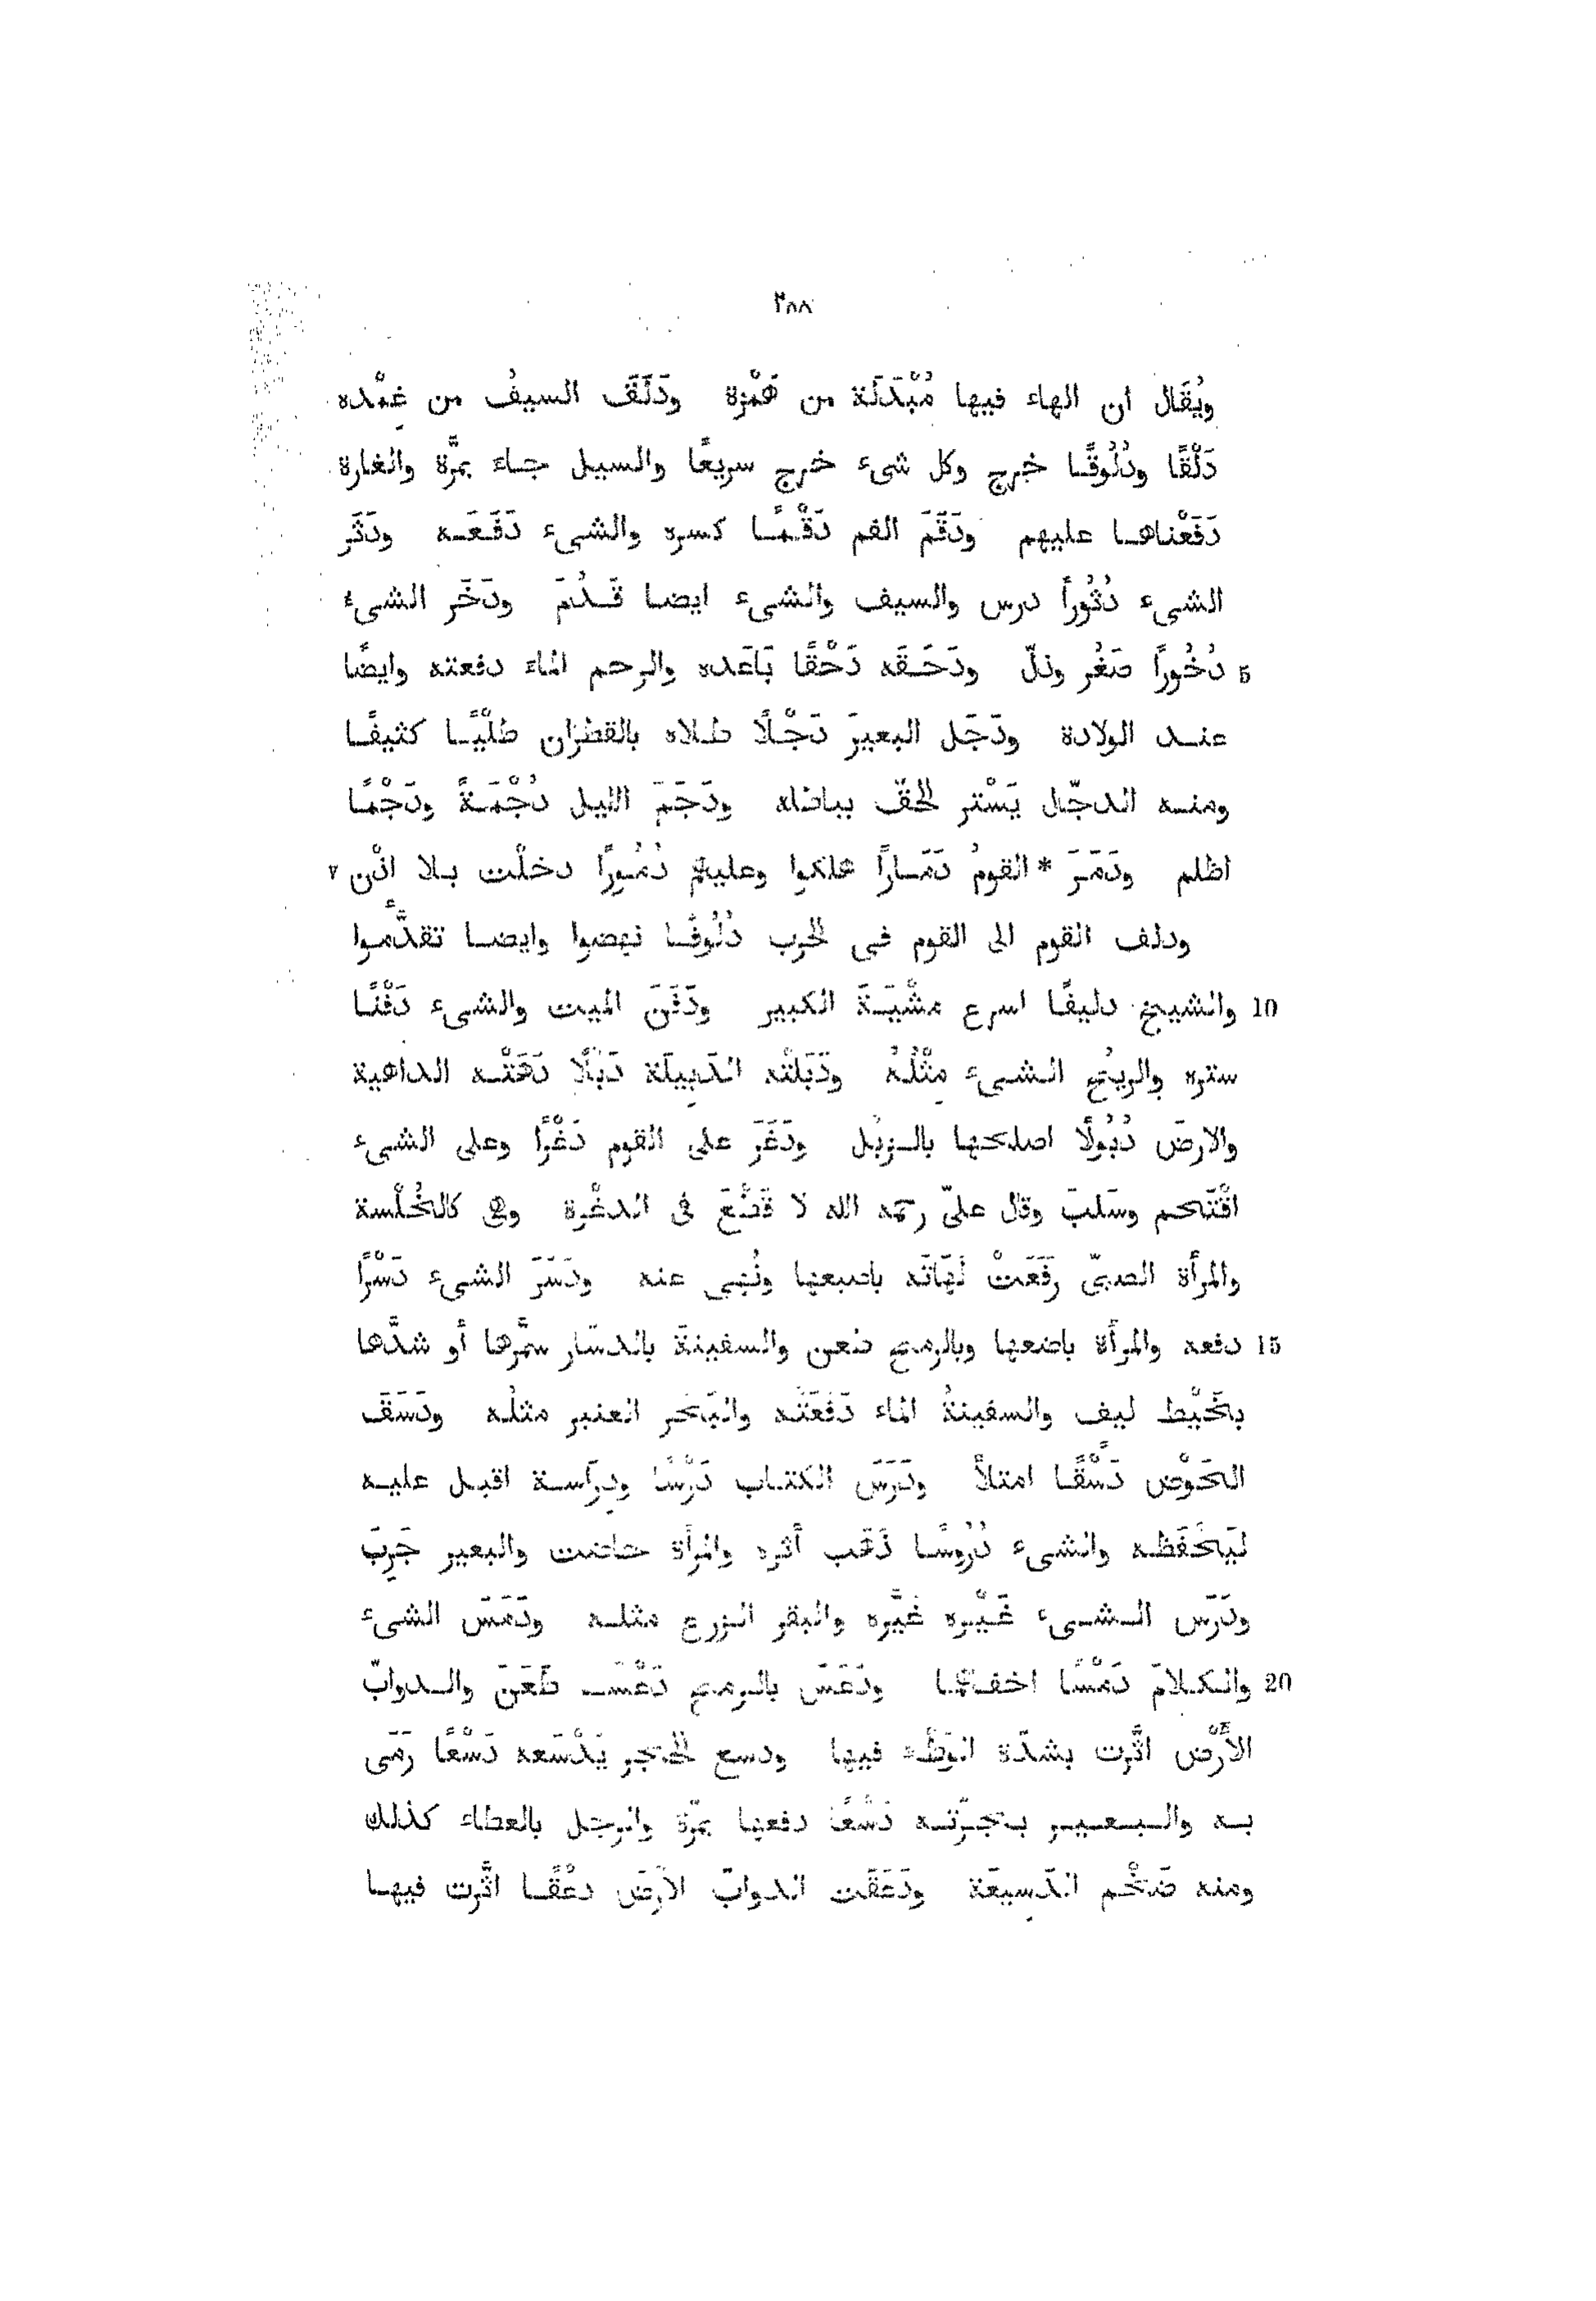 ٢٨٨
ويُقَال ان الهاء فيها مُبْدَلَة من هَمْزة ودَلَقَ السيفُ من غِمْده
دَلْقًا ودُلُوقًا خرج وكل شىء خرج سريعًا والسيل جاء بمَرَّة والغارة
دَفَعْناها عليهم ودَقَمَ الفم دَقْمًا كسره والشىء دَفَعَه ودَثَر
الشىء دُثُوراً درس والسيف والشىء ايضا قَدُمَ ودَخَر الشىء
5 دُخُوراً صَغُر وذلّ ودَحَقَه دَحْقًا بَاعَده والرحم الماء دفعته وايضًا
عند الولادة ودَجَل البعيرَ دَجْلًا طلاه بالقطران طَلْيًا كثيفًا
ومنه الدجّال يَسْتر الحقّ بباطله ودَجَمَ الليل دُجْمَةً ودَجْمًا
اظلم ودَمَرَ * القومُ دَمَاراً هلكوا وعليهم دُمُورًا دخلْت بلا اذْن ٧
ودلف القوم الى القوم فى الحرب دُلُوفًا نهضوا وايضا تقدَّموا
10 والشيخ دليفًا اسرع مشْيَةَ الكبير ودَفَنَ الميت والشىء دَفْنًا
ستره والريحُ الشىء مِثْلُهُ ودَبَلَتْه الدَبِيلَة دَبْلًا دَهَتْه الداهية
والارضَ دُبُولًا اصلحها بالزبْل ودَغَرَ على القوم دَغْرًا وعلى الشىء
اقْتَحم وسَلبَ وقال علىّ رحمه الله لا قَطْعَ فى الدغْرة وهى كالخُلْسة
والمرأة الصبىّ رَفَعَتْ لَهَاتَه باصبعها ونُهِى عنه ودَسَرَ الشىء دَسْرًا
15 دفعه والمرأة باضعها وبالرمح طعن والسفينةَ بالدسَار سمَّرها أو شدَّها
بخَيْط ليف والسفينةُ الماء دَفَعَتْه والبَحْر العنبر مثلُه ودَسَقَ
الحَوْض دَسْقًا امتلأ ودَرَسَ الكتاب دَرْسًا ودِرَاسة اقبل عليه
ليَحْفَظه والشىء دُرُوسًا ذَهَب أثره والمرأة حاضت والبعير جَرِبَ
ودَرَس الشىء غَيْره غَيَّره والبقر الزرع مثله ودَمَسَ الشىء
20 والكلامَ دَمْسًا اخفاهما ودَعَسَ بالرمح دَعْسًا طَعَنَ والدوابّ
الأرْض اثَّرت بشدّة الوَطْء فيها ودسع الحجر يَدْسَعه دَسْعًا رَمَى
به والبعير بجرّته دَسْعًا دفعها بمَرّة والرجل بالعطاء كذلك
ومنه ضَخْم الدَسِيعَة ودَعَقَت الدوابّ الارضَ دعْقًا اثَّرت فيها